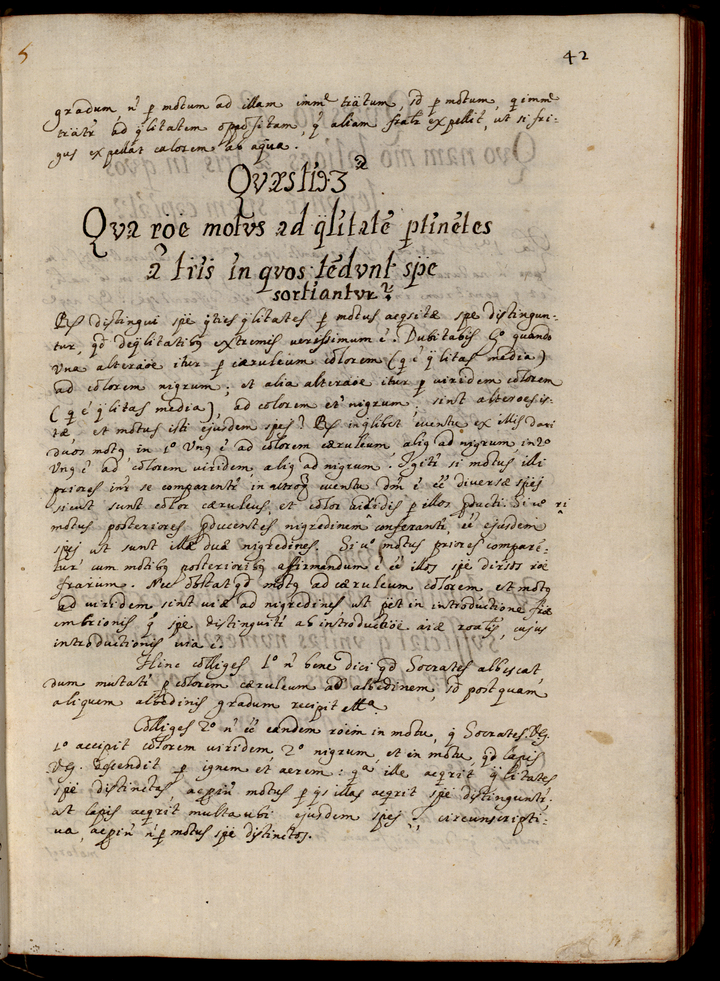 42
gradum ñ p motum ad illam imme trãtum, sd p motum, q imme
triãtr ad qlitatem oppositam, q aliam fratr expellit, ut si fri-
gus expellat calorem ab aqua.
Qvæstio 3ª
Qva rõe motvs ad qlitatẽ ptinẽtes
ã trĩs in qvos tẽdvnt spẽ
sortiantvr
distingui spẽ qties qlitates p motus aeqsitæ spe distingun-
tur, qd de qlitatibq extremis verissimum ẽ. Dubitabis 1º quando
una alteraõe itur p cæruleum colorem (q ẽ qlitas media)
ad colorem nigrum; et alia alteraõe itur p viridem colorem
(q ẽ qlitas media), ad colorem et nigrum; sint
et motus isti ejusdem spei? in qlibet eventu ex illis dari
duos motq in 1º unq ẽ ad colorem cæruleum aliq ad nigrum, in 2º
unq ẽ ad colorem viridem aliq ad nigrum. Igitr si motus illi
priores inr se comparentr in utroq eventu dm ẽ eẽ diversæ spej
sicut sunt color cæruleus, et color viridis p illos pducti. Si uº
motus posteriores pducentes nigredinem conferantr eẽ ejusdem
spej ut sunt illæ duæ nigredines. Si uº motus priores comparẽ-
tur cum motibq posterioribq affirmandum ẽ eẽ illos spẽ diversos rõe
frarum. Nec obstat qd motq ad cæruleum colorem et motq
ad viridem sint viæ ad nigredines ut pẽt in introductione fræ
embrionis q spẽ distinguitr ab introductiõe aiæ roalis, cujus
introductionis via ẽ.
Hinc colliges 1º ñ bene dici qd Socrates albescat,
dum mutatr p colorem cæruleum ad albedinem, sd postquam
aliquem albedinis gradum recipit
Colliges 2º ñ eẽ eandem rõem in motu, q Socrates V.G.
1º accipit colorem viridem 2º nigrum et in motu, qd lapis
V.G. descendit p ignem et aerem: qª ille aeqrit qlitates
spẽ distinctas, ac pin motus p qs illas aeqrit spẽ distinguntr,
at lapis aeqrit multa ubi ejusdem spej, circumscripti-
va, ac pin ñ p motus spẽ distinctos.